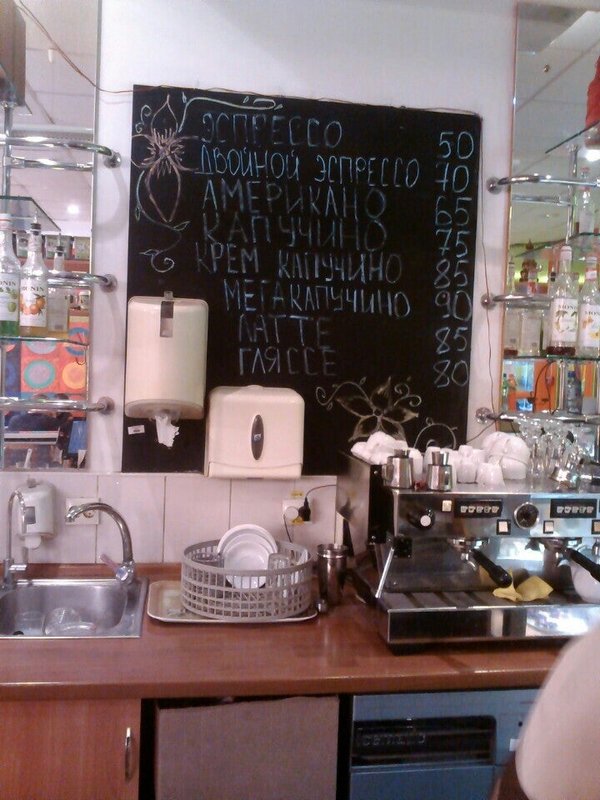 ЭСПРЕССО 50
ДВОЙНОЙ ЭСПРЕССО 70
АМЕРИКАНО 65
КАПУЧИНО 75
КРЕМ КАПУЧИНО 85
МЕГАКАПУЧИНО 90
ЛАТТЕ 85
ГЛЯССЕ 80
MONIN